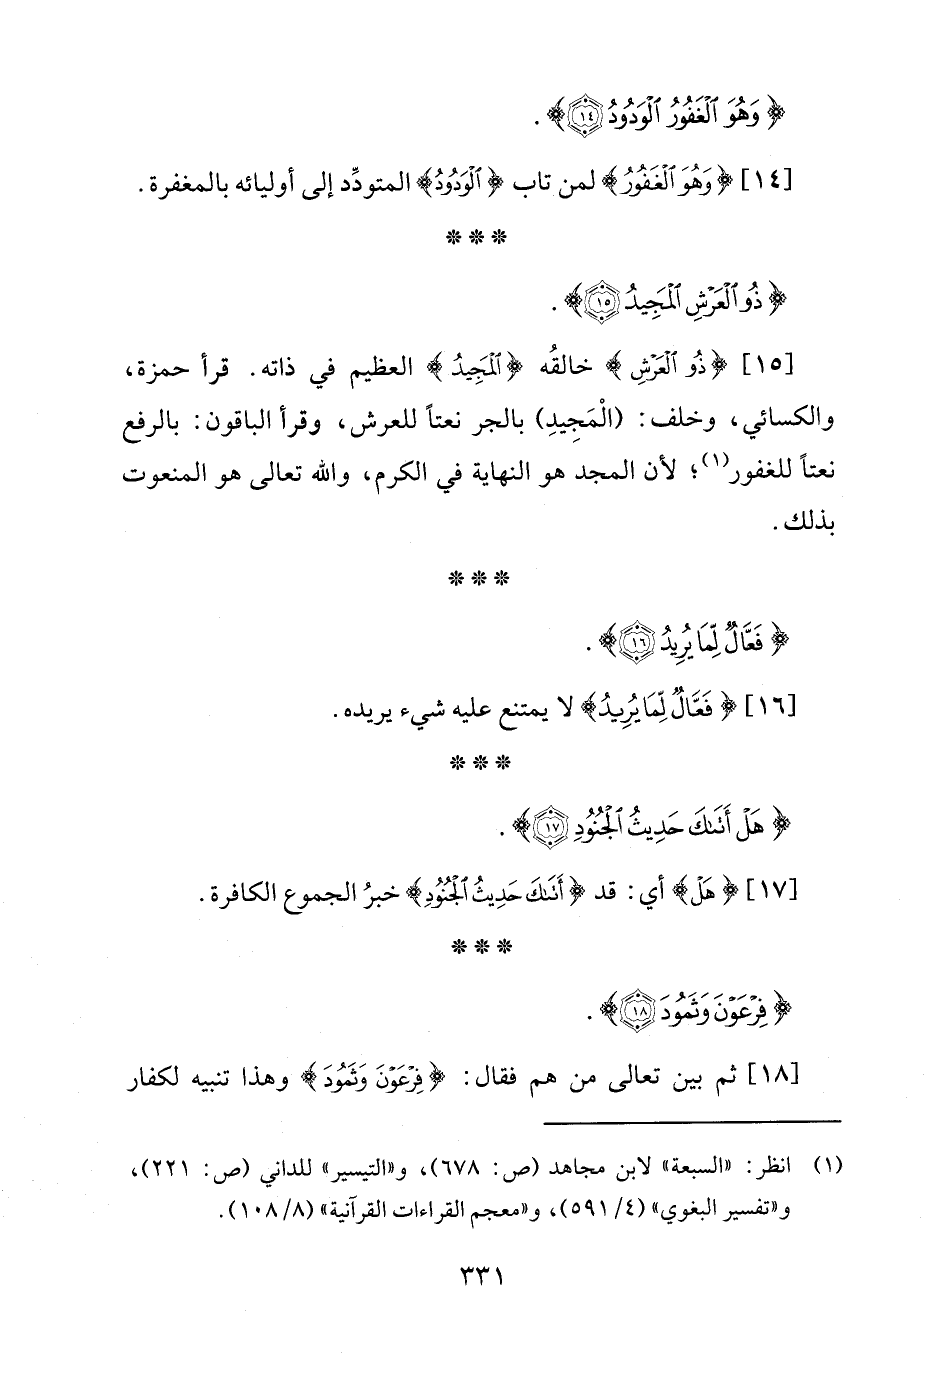 ﴿ وَهُوَ ٱلْغَفُورُ ٱلْوَدُودُ ١٤ ﴾ .
[١٤] ﴿ وَهُوَ ٱلْغَفُورُ ﴾ لمن تاب ﴿ ٱلْوَدُودُ ﴾ المتودِّد إلى أوليائه بالمغفرة .
* * *
﴿ ذُو ٱلْعَرْشِ ٱلْمَجِيدُ ١٥ ﴾ .
[١٥] ﴿ ذُو ٱلْعَرْشِ ﴾ خالقُه ﴿ ٱلْمَجِيدُ ﴾ العظيم في ذاته . قرأ حمزة،
والكسائي، وخلف: (الْمَجِيدِ) بالجر نعتاً للعرش، وقرأ الباقون: بالرفع
نعتاً للغفور(١)؛ لأن المجد هو النهاية في الكرم، والله تعالى هو المنعوت
بذلك .
* * *
﴿ فَعَّالٌ لِّمَا يُرِيدُ ١٦ ﴾ .
[١٦] ﴿ فَعَّالٌ لِّمَا يُرِيدُ ﴾ لا يمتنع عليه شيء يريده .
* * *
﴿ هَلْ أَتَىٰكَ حَدِيثُ ٱلْجُنُودِ ١٧ ﴾ .
[١٧] ﴿ هَلْ ﴾ أي: قد ﴿ أَتَىٰكَ حَدِيثُ ٱلْجُنُودِ ﴾ خبرُ الجموع الكافرة .
* * *
﴿ فِرْعَوْنَ وَثَمُودَ ١٨ ﴾ .
[١٨] ثم بين تعالى من هم فقال: ﴿ فِرْعَوْنَ وَثَمُودَ ﴾ وهذا تنبيه لكفار
(١) انظر: «السبعة» لابن مجاهد (ص: ٦٧٨)، و«التيسير» للداني (ص: ٢٢١)،
و«تفسير البغوي» (٤/ ٥٩١)، و«معجم القراءات القرآنية» (٨/ ١٠٨).
٣٣١